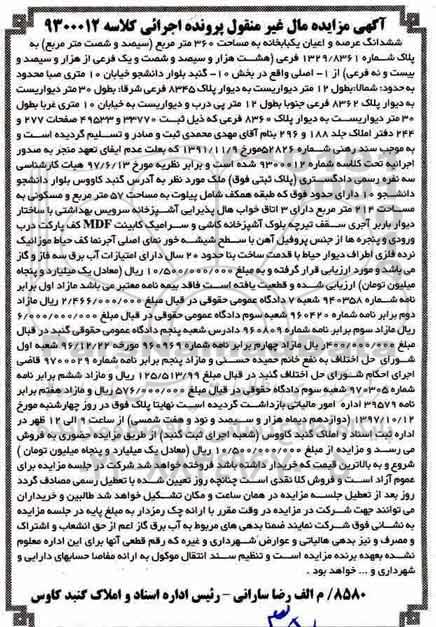 آگهی مزایده مال غیر منقول پرونده اجرائی کلاسه ۹۳۰۰۰۱۲
ششدانگ عرصه و اعیان یکبابخانه به مساحت ۳۶۰ متر مربع (سیصد و شصت متر مربع) به
پلاک شماره ۱۳۲۹/۸۳۶۱ فرعی (هشت هزار و سیصد و شصت و یک فرعی از هزار و سیصد و
بیست و نه فرعی) از ۱- اصلی واقع در بخش ۱۰- گنبد بلوار دانشجو خیابان ۱۰ متری صبا محدود
به حدود: شمالا: بطول ۱۲ متر دیواریست به دیوار پلاک ۸۳۴۵ فرعی شرقا: بطول ۳۰ متر دیواریست
به دیوار پلاک ۸۳۶۲ فرعی جنوبا بطول ۱۲ متر پی درب و دیواریست به خیابان ۱۰ متری غربا بطول
۳۰ متر دیواریست به دیوار پلاک ۸۳۶۰ فرعی که ذیل ثبت ۳۳۷۷۰ و ۴۹۵۳۳ صفحات ۲۷۷ و
۲۴۴ دفتر املاک جلد ۱۸۸ و ۲۹۶ بنام آقای مهدی محمدی ثبت و صادر و تسلیم گردیده است و
به موجب سند رهنی شماره ۵۲۸۲۶مورخ ۱۳۹۱/۱۱/۹ که بعلت عدم ایفای تعهد منجر به صدور
اجرائیه تحت کلاسه شماره ۹۳۰۰۰۱۲ شده است و برابر نظریه مورخ ۹۷/۶/۱۳ هیات کارشناسی
سه نفره رسمی دادگستری (پلاک ثبتی فوق) ملک مورد نظر به آدرس گنبد کاووس بلوار دانشجو
دانشجو ۱۰ دارای حدود فوق که طبقه همکف شامل پیلوت به مساحت ۵۷ متر مربع و مسکونی به
مساحت ۲۱۴ متر مربع دارای ۳ اتاق خواب هال پذیرایی آشپزخانه سرویس بهداشتی با ساختار
دیوار باربر آجری سقف تیرچه بلوک آشپزخانه کاشی و سرامیک کابینت MDF کف پارکت درب
ورودی و پنجره ها از جنس پروفیل آهن با سطح شیشه خور نمای اصلی آجرنما کف حیاط موزائیک
نرده فلزی اطراف دیوار حیاط با قدمت ساخت بنا حدود ۲۰ سال دارای امتیازات آب برق سه فاز و گاز
می باشد و مورد ارزیابی قرار گرفته و به مبلغ ۱۰/۵۰۰/۰۰۰/۰۰۰ ریال (معادل یک میلیارد و پنجاه
میلیون تومان) ارزیابی شده و قطعیت یافته است فاقد بیمه نامه معتبر می باشد مازاد اول برابر
نامه شماره ۹۴۰۳۵۸ شعبه ۷ دادگاه عمومی حقوقی در قبال مبلغ ۲/۴۶۶/۰۰۰/۰۰۰ ریال مازاد
دوم برابر نامه شماره ۹۶۰۴۲۰ شعبه سوم دادگاه عمومی حقوقی در قبال مبلغ ۶/۰۰۰/۰۰۰/۰۰۰
ریال مازاد سوم برابر نامه شماره ۹۶۰۸۰۹ دادرس شعبه پنجم دادگاه عمومی حقوقی گنبد در قبال
مبلغ ۴۰۰/۰۰۰/۰۰۰ ریال مازاد چهارم برابر نامه شماره ۹۶۰۷۶۹ مورخه ۹۶/۱۲/۲۲ شعبه اول
شورای حل اختلاف به نفع خانم حمیده حسنی و مازاد پنجم برابر نامه شماره ۹۷۰۰۰۲۹ قاضی
اجرای احکام شورای حل اختلاف گنبد در قبال مبلغ ۱۲۵/۵۱۳/۹۹ ریال و مازاد ششم برابر نامه
شماره ۹۷۰۳۰۵ شعبه سوم دادگاه حقوقی در قبال مبلغ ۵۷۶/۰۰۰/۰۰۰ ریال و مازاد هفتم برابر
نامه ۳۹۵۷۹ اداره امور مالیاتی بازداشت گردیده است نهایتا پلاک فوق در روز چهارشنبه مورخ
۱۳۹۷/۱۰/۱۲ (دوازدهم دیماه هزار و سیصد و نود و هفت شمسی) از ساعت ۹ الی ۱۲ ظهر در
اداره ثبت اسناد و املاک گنبد کاووس (شعبه اجرای ثبت گنبد) از طریق مزایده حضوری به فروش
می رسد و مزایده از مبلغ ۱۰/۵۰۰/۰۰۰/۰۰۰ ریال (معادل یک میلیارد و پنجاه میلیون تومان )
شروع و به بالاترین قیمت که خریدار داشته باشد فروخته خواهد شد شرکت در جلسه مزایده برای
عموم آزاد است و فروش کلا نقدی است چنانچه روز تعیین شده با تعطیل رسمی مصادف گردد
روز بعد از تعطیل جلسه مزایده در همان ساعت و مکان تشکیل خواهد شد طالبین و خریداران
می توانند جهت شرکت در مزایده در وقت مقرر با ارائه چک رمزدار به مبلغ پایه در جلسه مزایده
به نشانی فوق شرکت نمایند ضمنا بدهی های مربوط به آب برق گاز اعم از حق انشعاب و اشتراک
و مصرف و نیز بدهی مالیاتی و عوارض شهرداری و غیره که رقم قطعی آنها برای این اداره معلوم
نشده بعهده برنده مزایده است و تنظیم سند انتقال موکول به ارائه مفاصا حسابهای دارایی و
شهرداری و ... خواهد بود .
۸۵۸۰/ م الف رضا سارانی – رئیس اداره اسناد و املاک گنبد کاوس